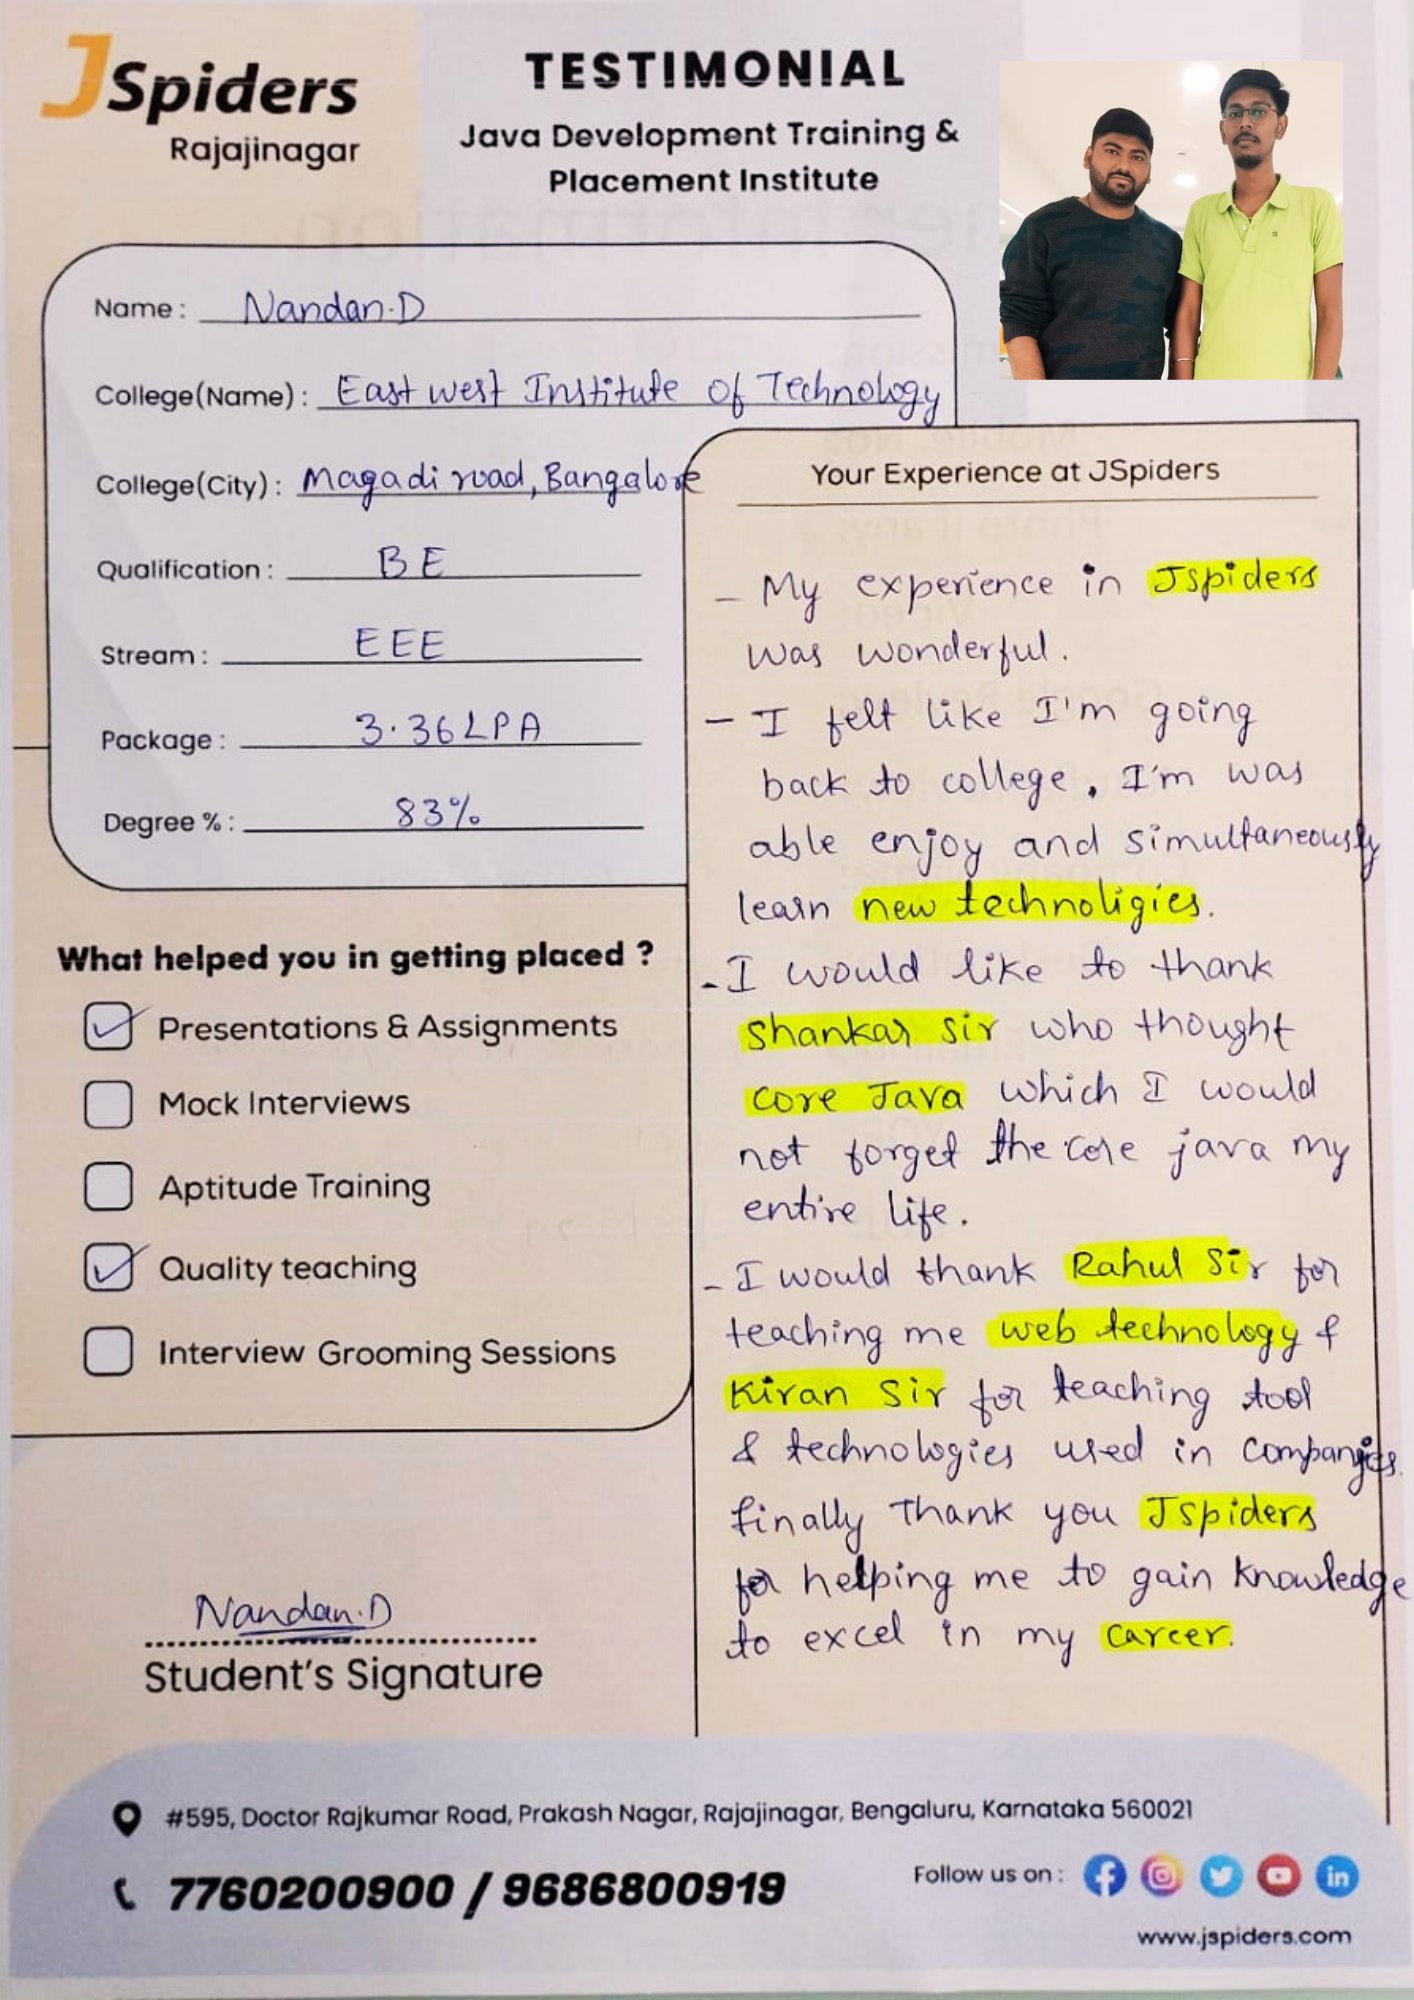 JSpiders
Rajajinagar
TESTIMONIAL
Java Development Training &
Placement Institute
Name : Nandan.D
College(Name) : East west Institute of Technology
College(City) : Magadi road, Bangalore
Qualification : BE
Stream : EEE
Package : 3.36LPA
Degree % : 83%
What helped you in getting placed ?
Presentations & Assignments
Mock Interviews
Aptitude Training
Quality teaching
Interview Grooming Sessions
Nandan.D
Student's Signature
Your Experience at JSpiders
- My experience in Jspiders
was wonderful.
- I felt like I'm going
back to college. I'm was
able enjoy and simultaneously
learn new technoligies.
- I would like to thank
Shankar Sir who thought
core Java which I would
not forget the core java my
entire life.
- I would thank Rahul Sir for
teaching me web technology &
Kiran Sir for teaching tool
& technologies used in companies.
finally Thank you Jspiders
for helping me to gain knowledge
to excel in my career.
#595, Doctor Rajkumar Road, Prakash Nagar, Rajajinagar, Bengaluru, Karnataka 560021
7760200900 / 9686800919
Follow us on :
www.jspiders.com